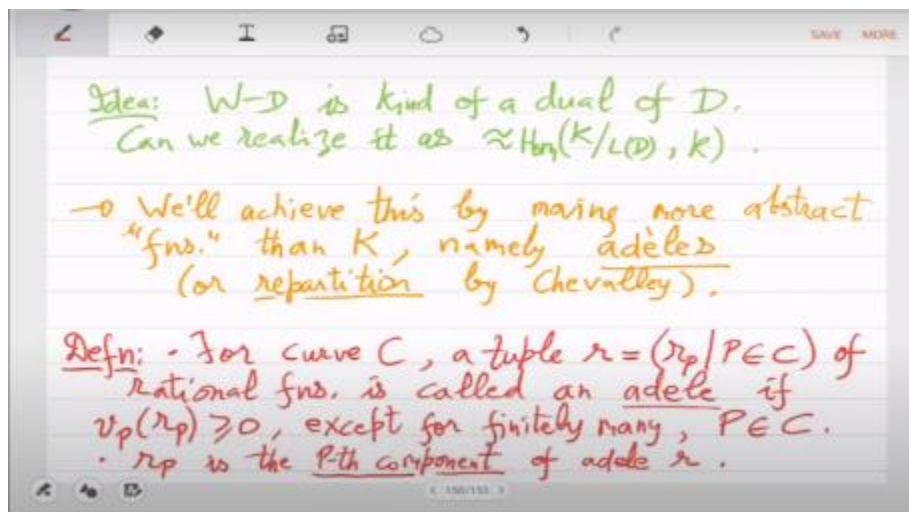 SAVE MORE
Idea: W-D is kind of a dual of D.
Can we realize it as ≈Hom(K/L(D), k) .
→ We'll achieve this by moving more abstract
"fns." than K, namely adèles
(or repartition by Chevalley).
Defn: · For curve C, a tuple r = (r_P | P∈C) of
rational fns. is called an adele if
v_P(r_P) ≥0, except for finitely many, P∈C.
· r_P is the P-th component of adele r.